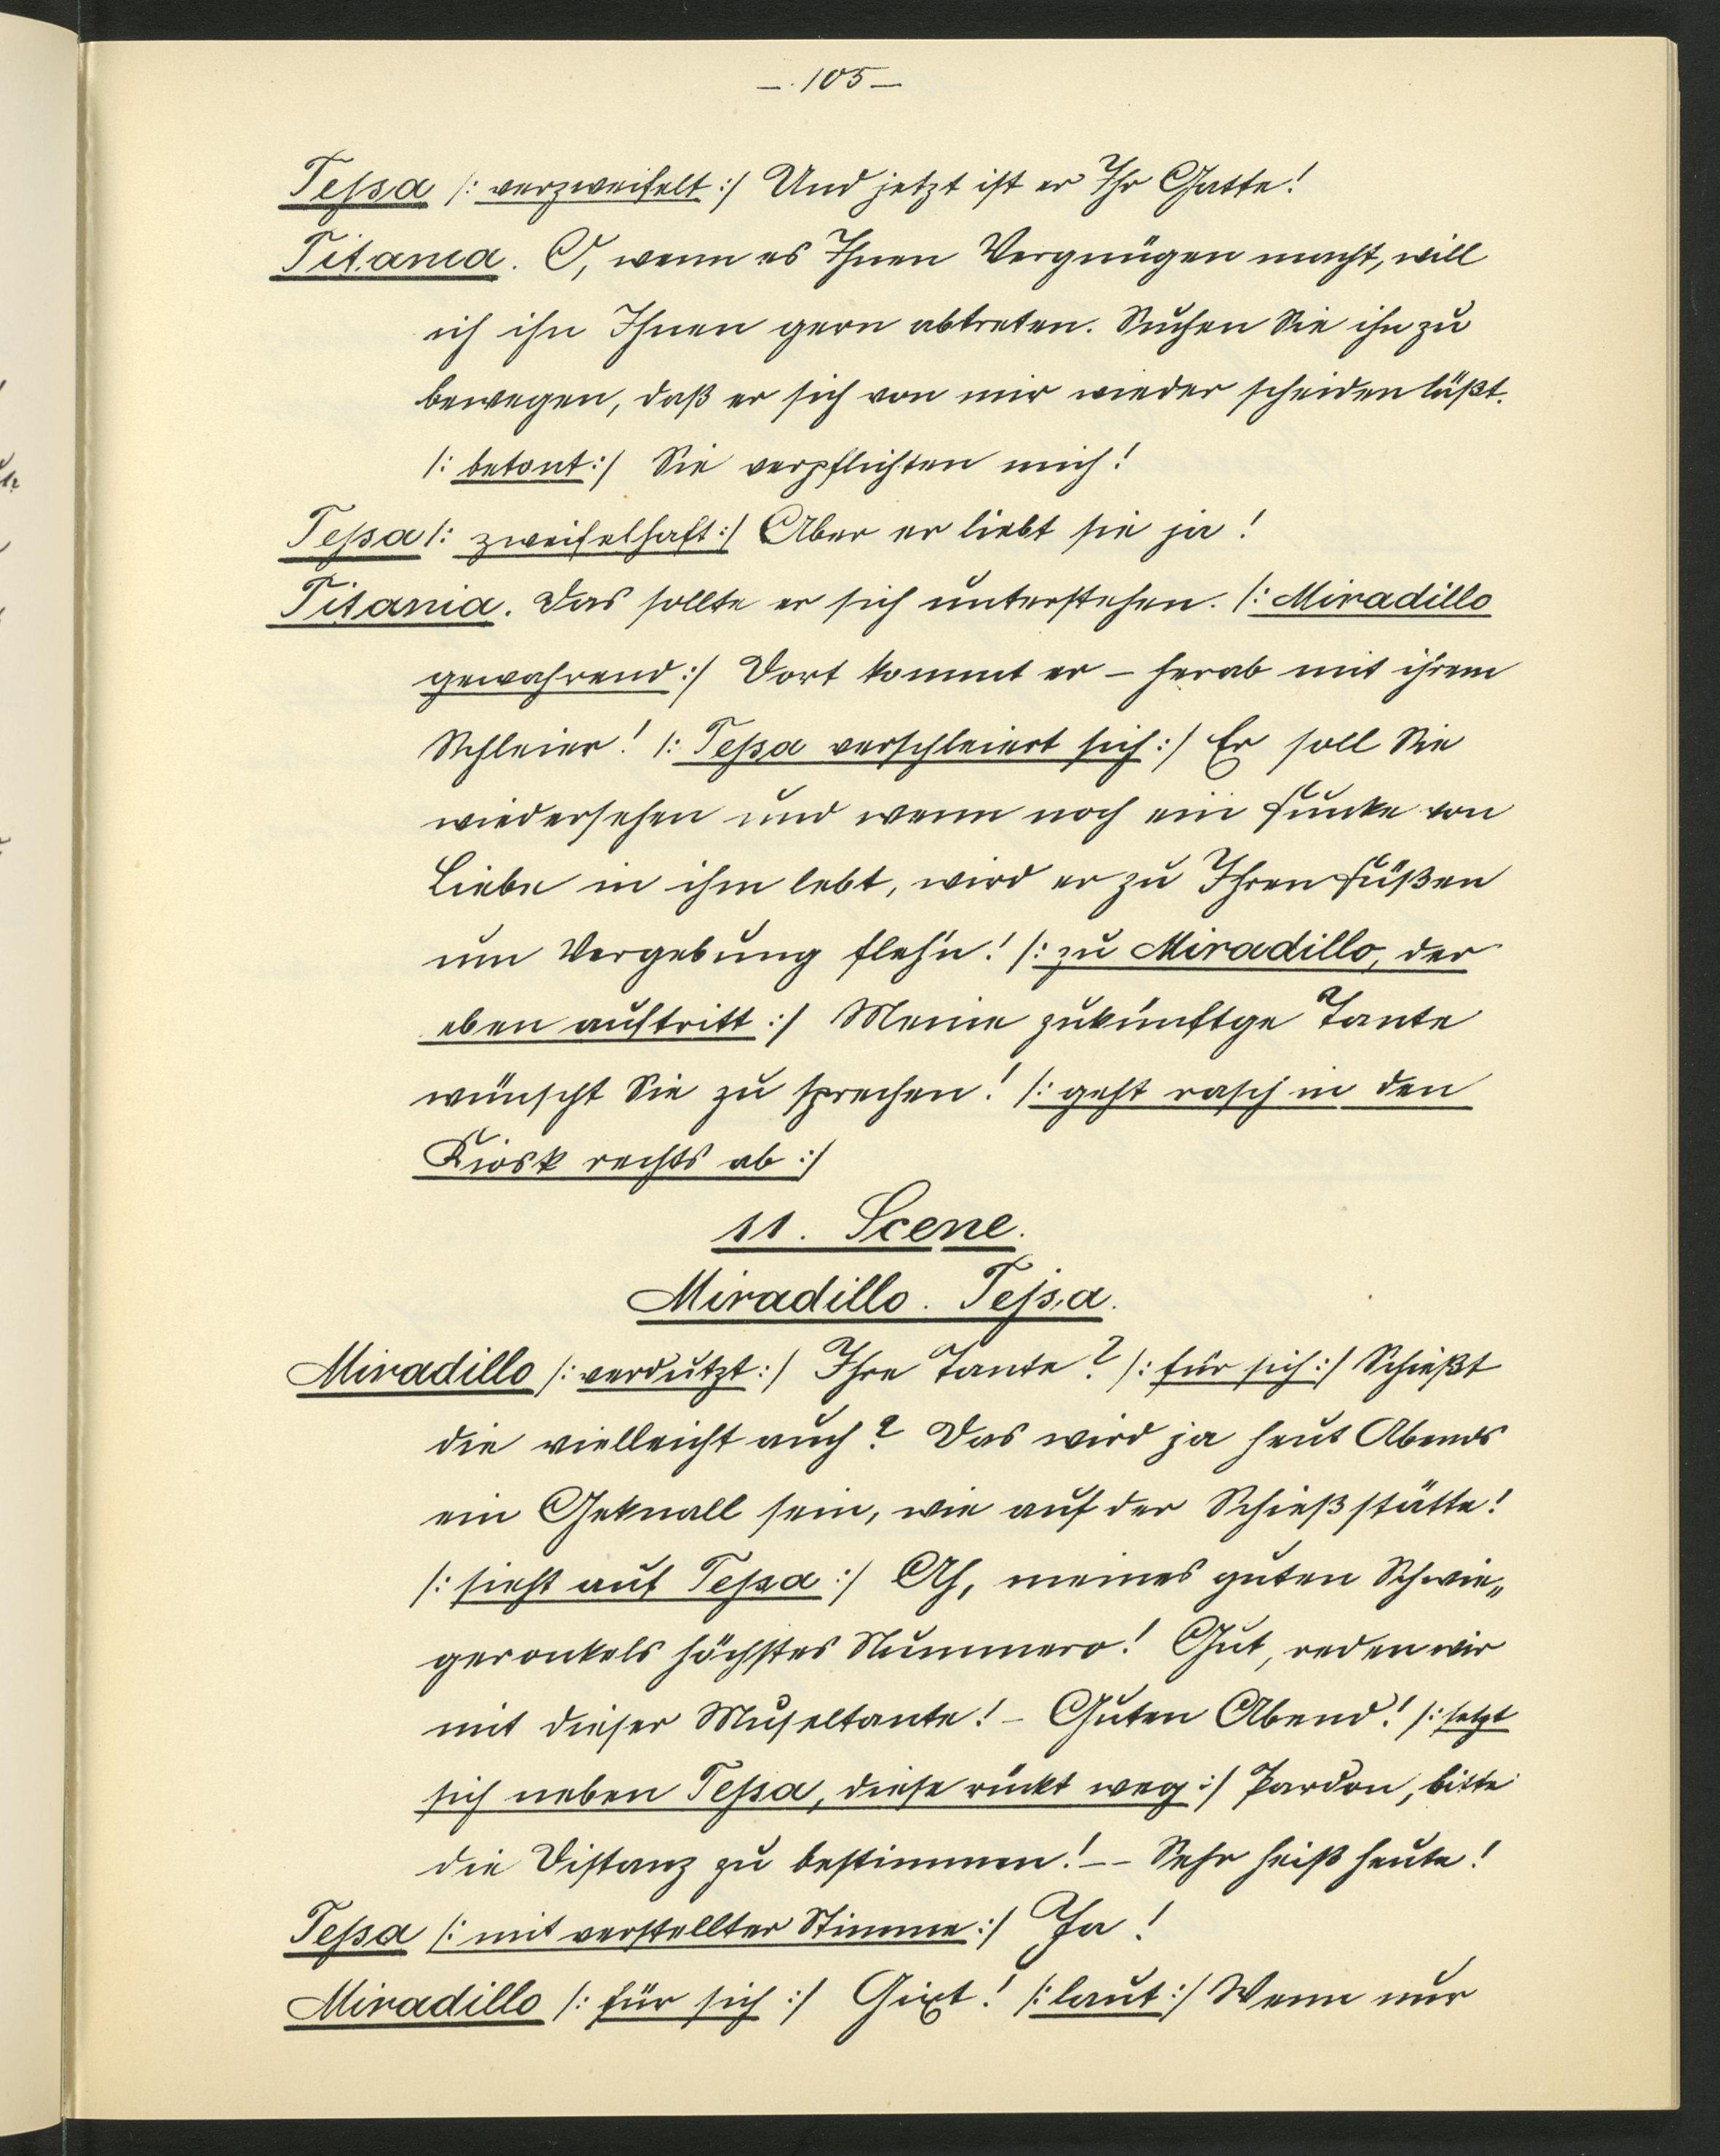 — 105 —
Tessa /: verzweifelt :/ Und jetzt ist er Ihr Gatte!
Titania. O, wenn es Ihnen Vergnügen macht, will
ich ihn Ihnen gern abtreten. Suchen Sie ihn zu
bewegen, daß er sich von mir wieder scheiden läßt.
/: betont :/ Sie verpflichten mich!
Tessa /: zweifelhaft :/ Aber er liebt sie ja!
Titania. Das sollte er sich unterstehen. /: Miradillo
gewahrend :/ Dort kommt er – herab mit ihrem
Schleier! /: Tessa verschleiert sich :/ Er soll Sie
wiedersehen und wenn noch ein Funke von
Liebe in ihm lebt, wird er zu Ihren Füßen
um Vergebung fleh'n! /: zu Miradillo, der
eben auftritt :/ Meine zukünftge Tante
wünscht Sie zu sprechen! /: geht rasch in den
Kiosk rechts ab :/
11. Scene.
Miradillo. Tessa.
Miradillo /: verdutzt :/ Ihre Tante? /: für sich :/ Schießt
die vielleicht auch? Das wird ja heut Abends
ein Geknall sein, wie auf der Schießstätte!
/: sieht auf Tessa :/ Ah, meines guten Schwie„
geronkels höchstes Nummero! Gut, reden wir
mit dieser Museltante! – Guten Abend! /: setzt
sich neben Tessa, diese rückt weg :/ Pardon, bitte
die Distanz zu bestimmen! – – Sehr heiß heute!
Tessa /: mit verstellter Stimme :/ Ja!
Miradillo /: für sich :/ Gixt! /: laut :/ Wenn nur